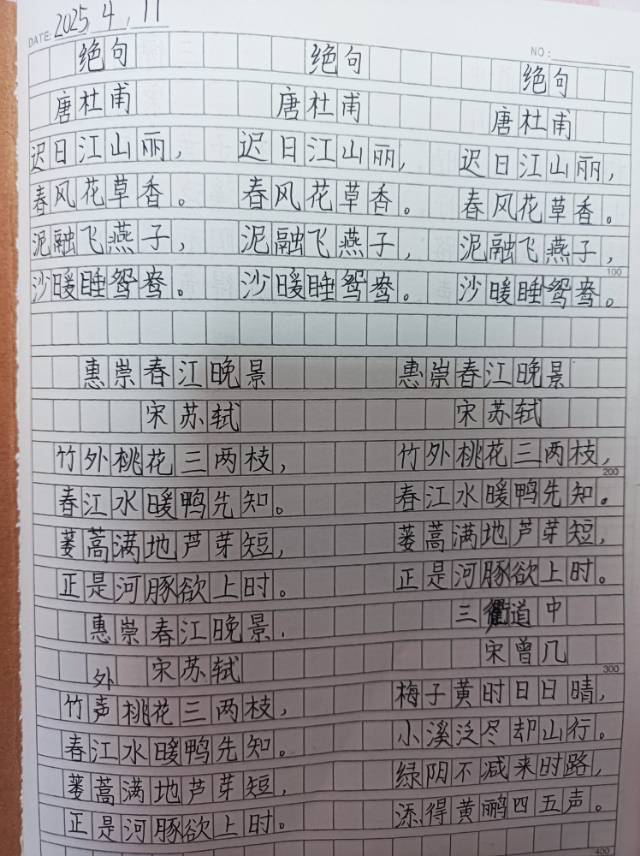 DATE: 2025 4 . 11
NO:
绝句 绝句 绝句
唐杜甫 唐杜甫 唐杜甫
迟日江山丽， 迟日江山丽， 迟日江山丽，
春风花草香。 春风花草香。 春风花草香。
泥融飞燕子， 泥融飞燕子， 泥融飞燕子，
100
沙暖睡鸳鸯。 沙暖睡鸳鸯。 沙暖睡鸳鸯。
惠崇春江晚景 惠崇春江晚景
宋苏轼 宋苏轼
竹外桃花三两枝， 竹外桃花三两枝，
200
春江水暖鸭先知。 春江水暖鸭先知。
蒌蒿满地芦芽短， 蒌蒿满地芦芽短，
正是河豚欲上时。 正是河豚欲上时。
惠崇春江晚景. 三衢道中
宋苏轼 宋曾几
外
300
竹声桃花三两枝， 梅子黄时日日晴，
春江水暖鸭先知。 小溪泛尽却山行。
蒌蒿满地芦芽短， 绿阴不减来时路，
正是河豚欲上时。 添得黄鹂四五声。
400